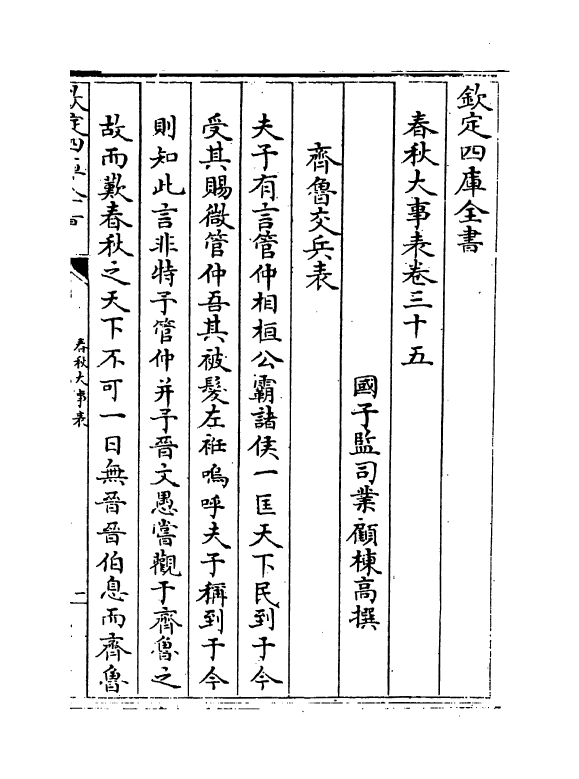 欽定四庫全書
春秋大事表卷三十五
國子監司業顧棟高撰
齊魯交兵表
夫子有言管仲相桓公霸諸侯一匡天下民到于今
受其賜微管仲吾其被髪左衽嗚呼夫子稱到于今
則知此言非特予管仲并予晉文愚嘗觀于齊魯之
故而歎春秋之天下不可一日無晉晉伯息而齊魯
欽定四庫全書
春秋大事表